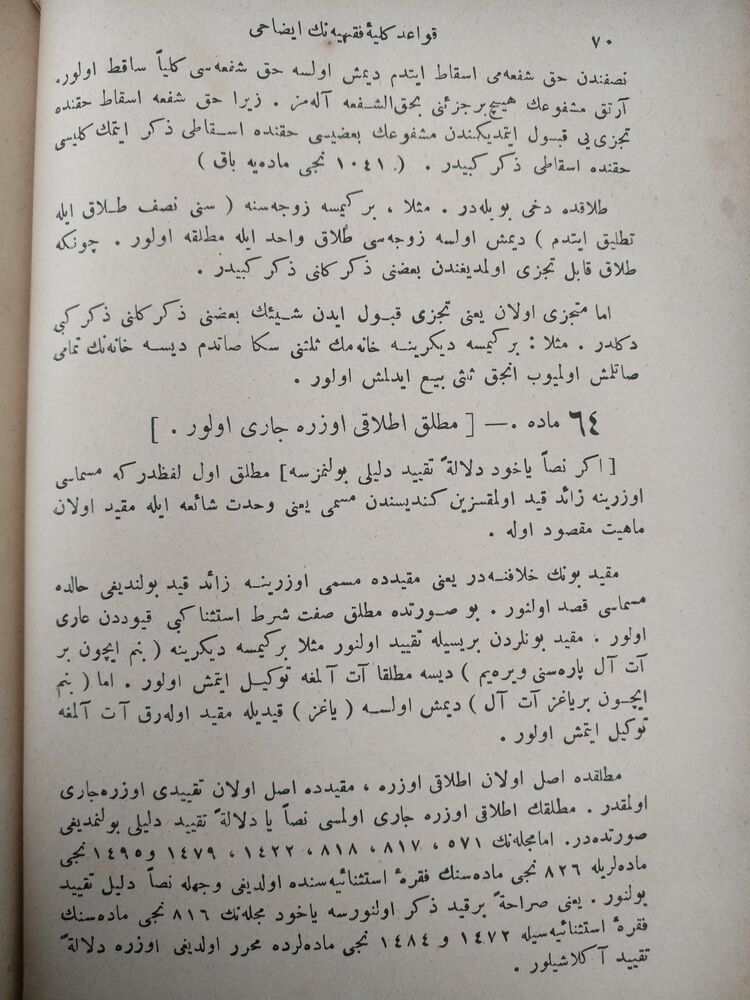 قواعد كليهٔ فقهيه‌نك ايضاحى
٧٠
نصفندن حق شفعه‌مى اسقاط ايتدم ديمش اولسه حق شفعه‌سى كلياً ساقط اولور.
آرتق مشفوعك هيچ بر جزئنى بحق‌الشفعه آله‌مز . زيرا حق شفعه اسقاط حقنده
تجزى‌يى قبول ايتمديكندن مشفوعك بعضيسى حقنده اسقاطى ذكر ايتمك كليسى
حقنده اسقاطى ذكر كبيدر . ( ١٠٤١ نجى ماده‌يه باق )
طلاقده دخى بويله‌در . مثلا ، بر كيمسه زوجه‌سنه ( سنى نصف طلاق ايله
تطليق ايتدم ) ديمش اولسه زوجه‌سى طلاق واحد ايله مطلقه اولور . چونكه
طلاق قابل تجزى اولمديغندن بعضنى ذكر كلنى ذكر كبيدر .
اما متجزى اولان يعنى تجزى قبول ايدن شيئك بعضنى ذكر كلنى ذكر كبى
دكلدر . مثلا : بر كيمسه ديكرينه خانه‌مك ثلثنى سكا صاتدم ديسه خانه‌نك تمامى
صاتلمش اولميوب انجق ثلثى بيع ايدلمش اولور .
٦٤ ماده .— [ مطلق اطلاقى اوزره جارى اولور . ]
[ اكر نصاً ياخود دلالةً تقييد دليلى بولنمزسه ] مطلق اول لفظدركه مسماسى
اوزرينه زائد قيد اولمقسزين كنديسندن مسمى يعنى وحدت شائعه ايله مقيد اولان
ماهيت مقصود اوله .
مقيد بونك خلافنه‌در يعنى مقيدده مسمى اوزرينه زائد قيد بولنديغى حالده
مسماسى قصد اولنور . بو صورتده مطلق صفت شرط استثنا كبى قيوددن عارى
اولور . مقيد بونلردن بريسيله تقييد اولنور مثلا بر كيمسه ديكرينه ( بنم ايچون بر
آت آل پاره‌سنى ويره‌يم ) ديسه مطلقا آت آلمغه توكيل ايتمش اولور . اما ( بنم
ايچون بر ياغز آت آل ) ديمش اولسه ( ياغز ) قيديله مقيد اوله‌رق آت آلمغه
توكيل ايتمش اولور .
مطلقده اصل اولان اطلاقى اوزره ، مقيدده اصل اولان تقييدى اوزره جارى
اولمقدر . مطلقك اطلاقى اوزره جارى اولمسى نصاً يا دلالةً تقييد دليلى بولنمديغى
صورتده‌در. اما مجله‌نك ٥٧١ ، ٨١٧ ، ٨١٨ ، ١٤٢٢ ، ١٤٧٩ و ١٤٩٥ نجى
ماده‌لريله ٨٢٦ نجى ماده‌سنك فقرهٔ استثنائيه‌سنده اولديغى وجهله نصاً دليل تقييد
بولنور . يعنى صراحةً بر قيد ذكر اولنورسه ياخود مجله‌نك ٨١٦ نجى ماده‌سنك
فقرهٔ استثنائيه‌سيله ١٤٧٢ و ١٤٨٤ نجى ماده‌لرده محرر اولديغى اوزره دلالةً
تقييد آكلاشيلور .